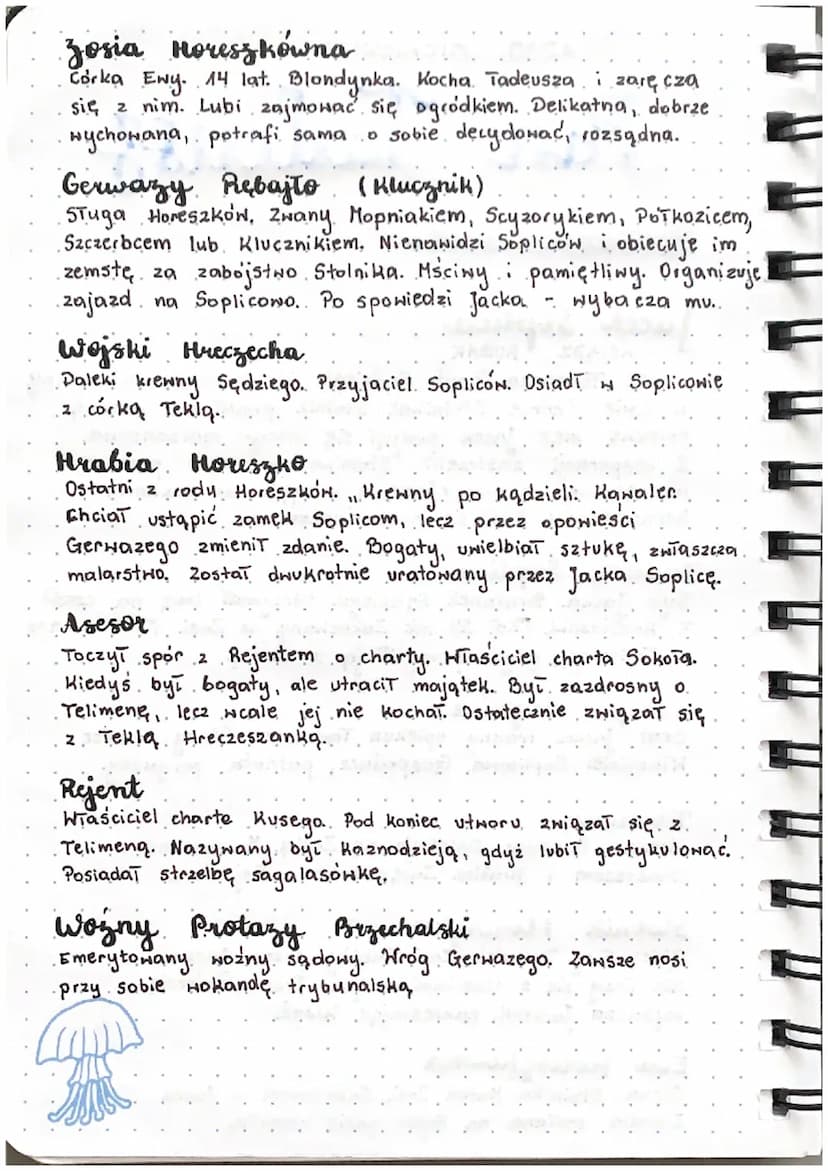 Zosia Horeszkówna
Córka Ewy. 14 lat. Blondynka. Kocha Tadeusza i zaręcza
się z nim. Lubi zajmować się ogródkiem. Delikatna, dobrze
wychowana, potrafi sama o sobie decydować, rozsądna.
Gerwazy Rębajło (Klucznik)
Sługa Horeszków. Zwany Mopniakiem, Scyzorykiem, Półkozicem,
Szczerbcem lub Klucznikiem. Nienawidzi Sopliców i obiecuje im
zemstę za zabójstwo Stolnika. Mściwy i pamiętliwy. Organizuje
zajazd na Soplicowo. Po spowiedzi Jacka - wybacza mu.
Wojski Hreczecha
Daleki krewny Sędziego. Przyjaciel Sopliców. Osiadł w Soplicowie
z córką Teklą.
Hrabia Horeszko
Ostatni z rodu Horeszków. „Krewny po kądzieli. Kawaler.
Chciał ustąpić zamek Soplicom, lecz przez opowieści
Gerwazego zmienił zdanie. Bogaty, uwielbiał sztukę, zwłaszcza
malarstwo. Został dwukrotnie uratowany przez Jacka Soplicę.
Asesor
Toczył spór z Rejentem o charty. Właściciel charta Sokoła.
Kiedyś był bogaty, ale utracił majątek. Był zazdrosny o
Telimenę, lecz wcale jej nie kochał. Ostatecznie związał się
z Teklą Hreczeszanką.
Rejent
Właściciel charta Kusego. Pod koniec utworu związał się z
Telimeną. Nazywany był kaznodzieją, gdyż lubił gestykulować.
Posiadał strzelbę sagalasówkę.
Woźny Protazy Brzechalski
Emerytowany woźny sądowy. Wróg Gerwazego. Zawsze nosi
przy sobie wokandę trybunalską